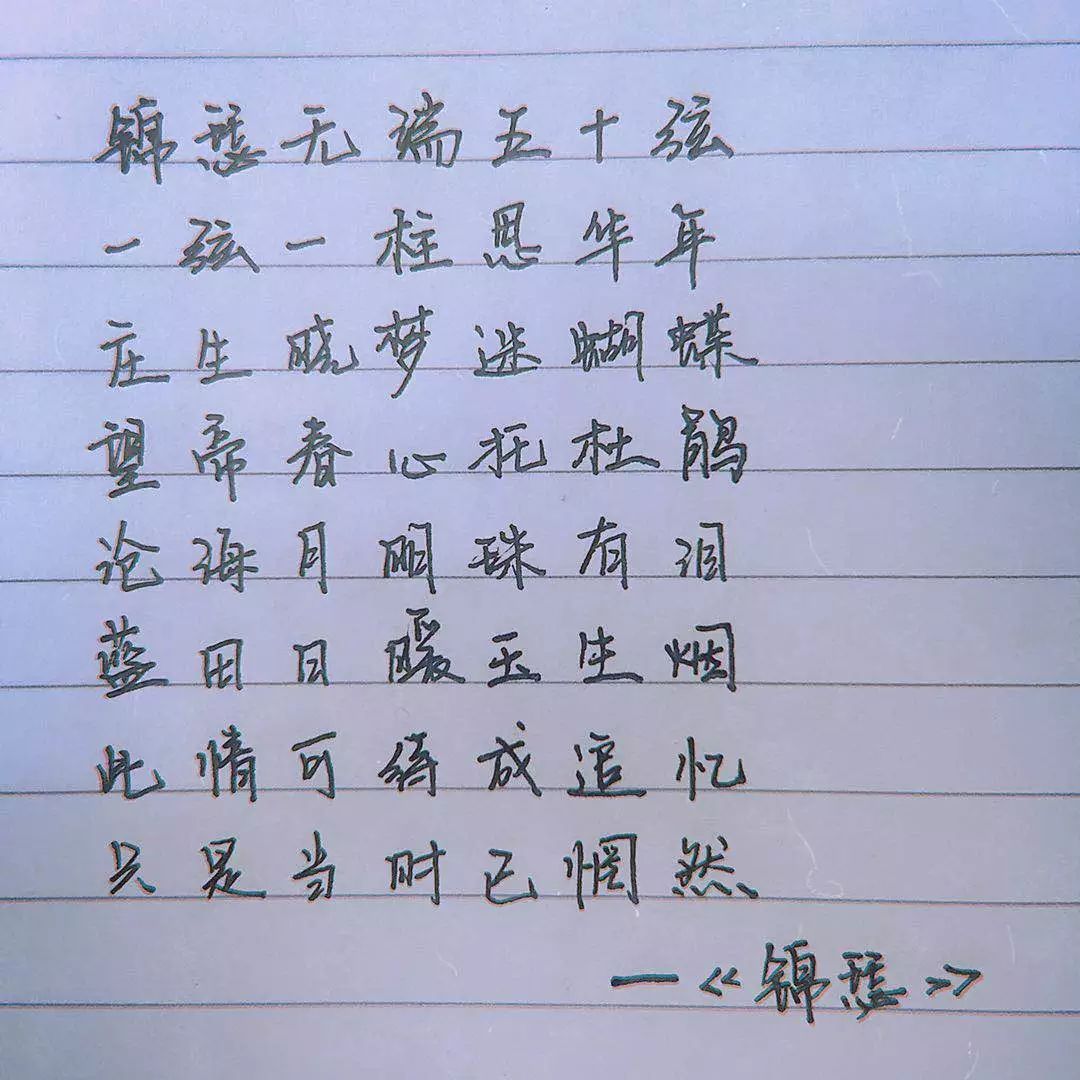 锦瑟无端五十弦
一弦一柱思华年
庄生晓梦迷蝴蝶
望帝春心托杜鹃
沧海月明珠有泪
蓝田日暖玉生烟
此情可待成追忆
只是当时已惘然
—《锦瑟》